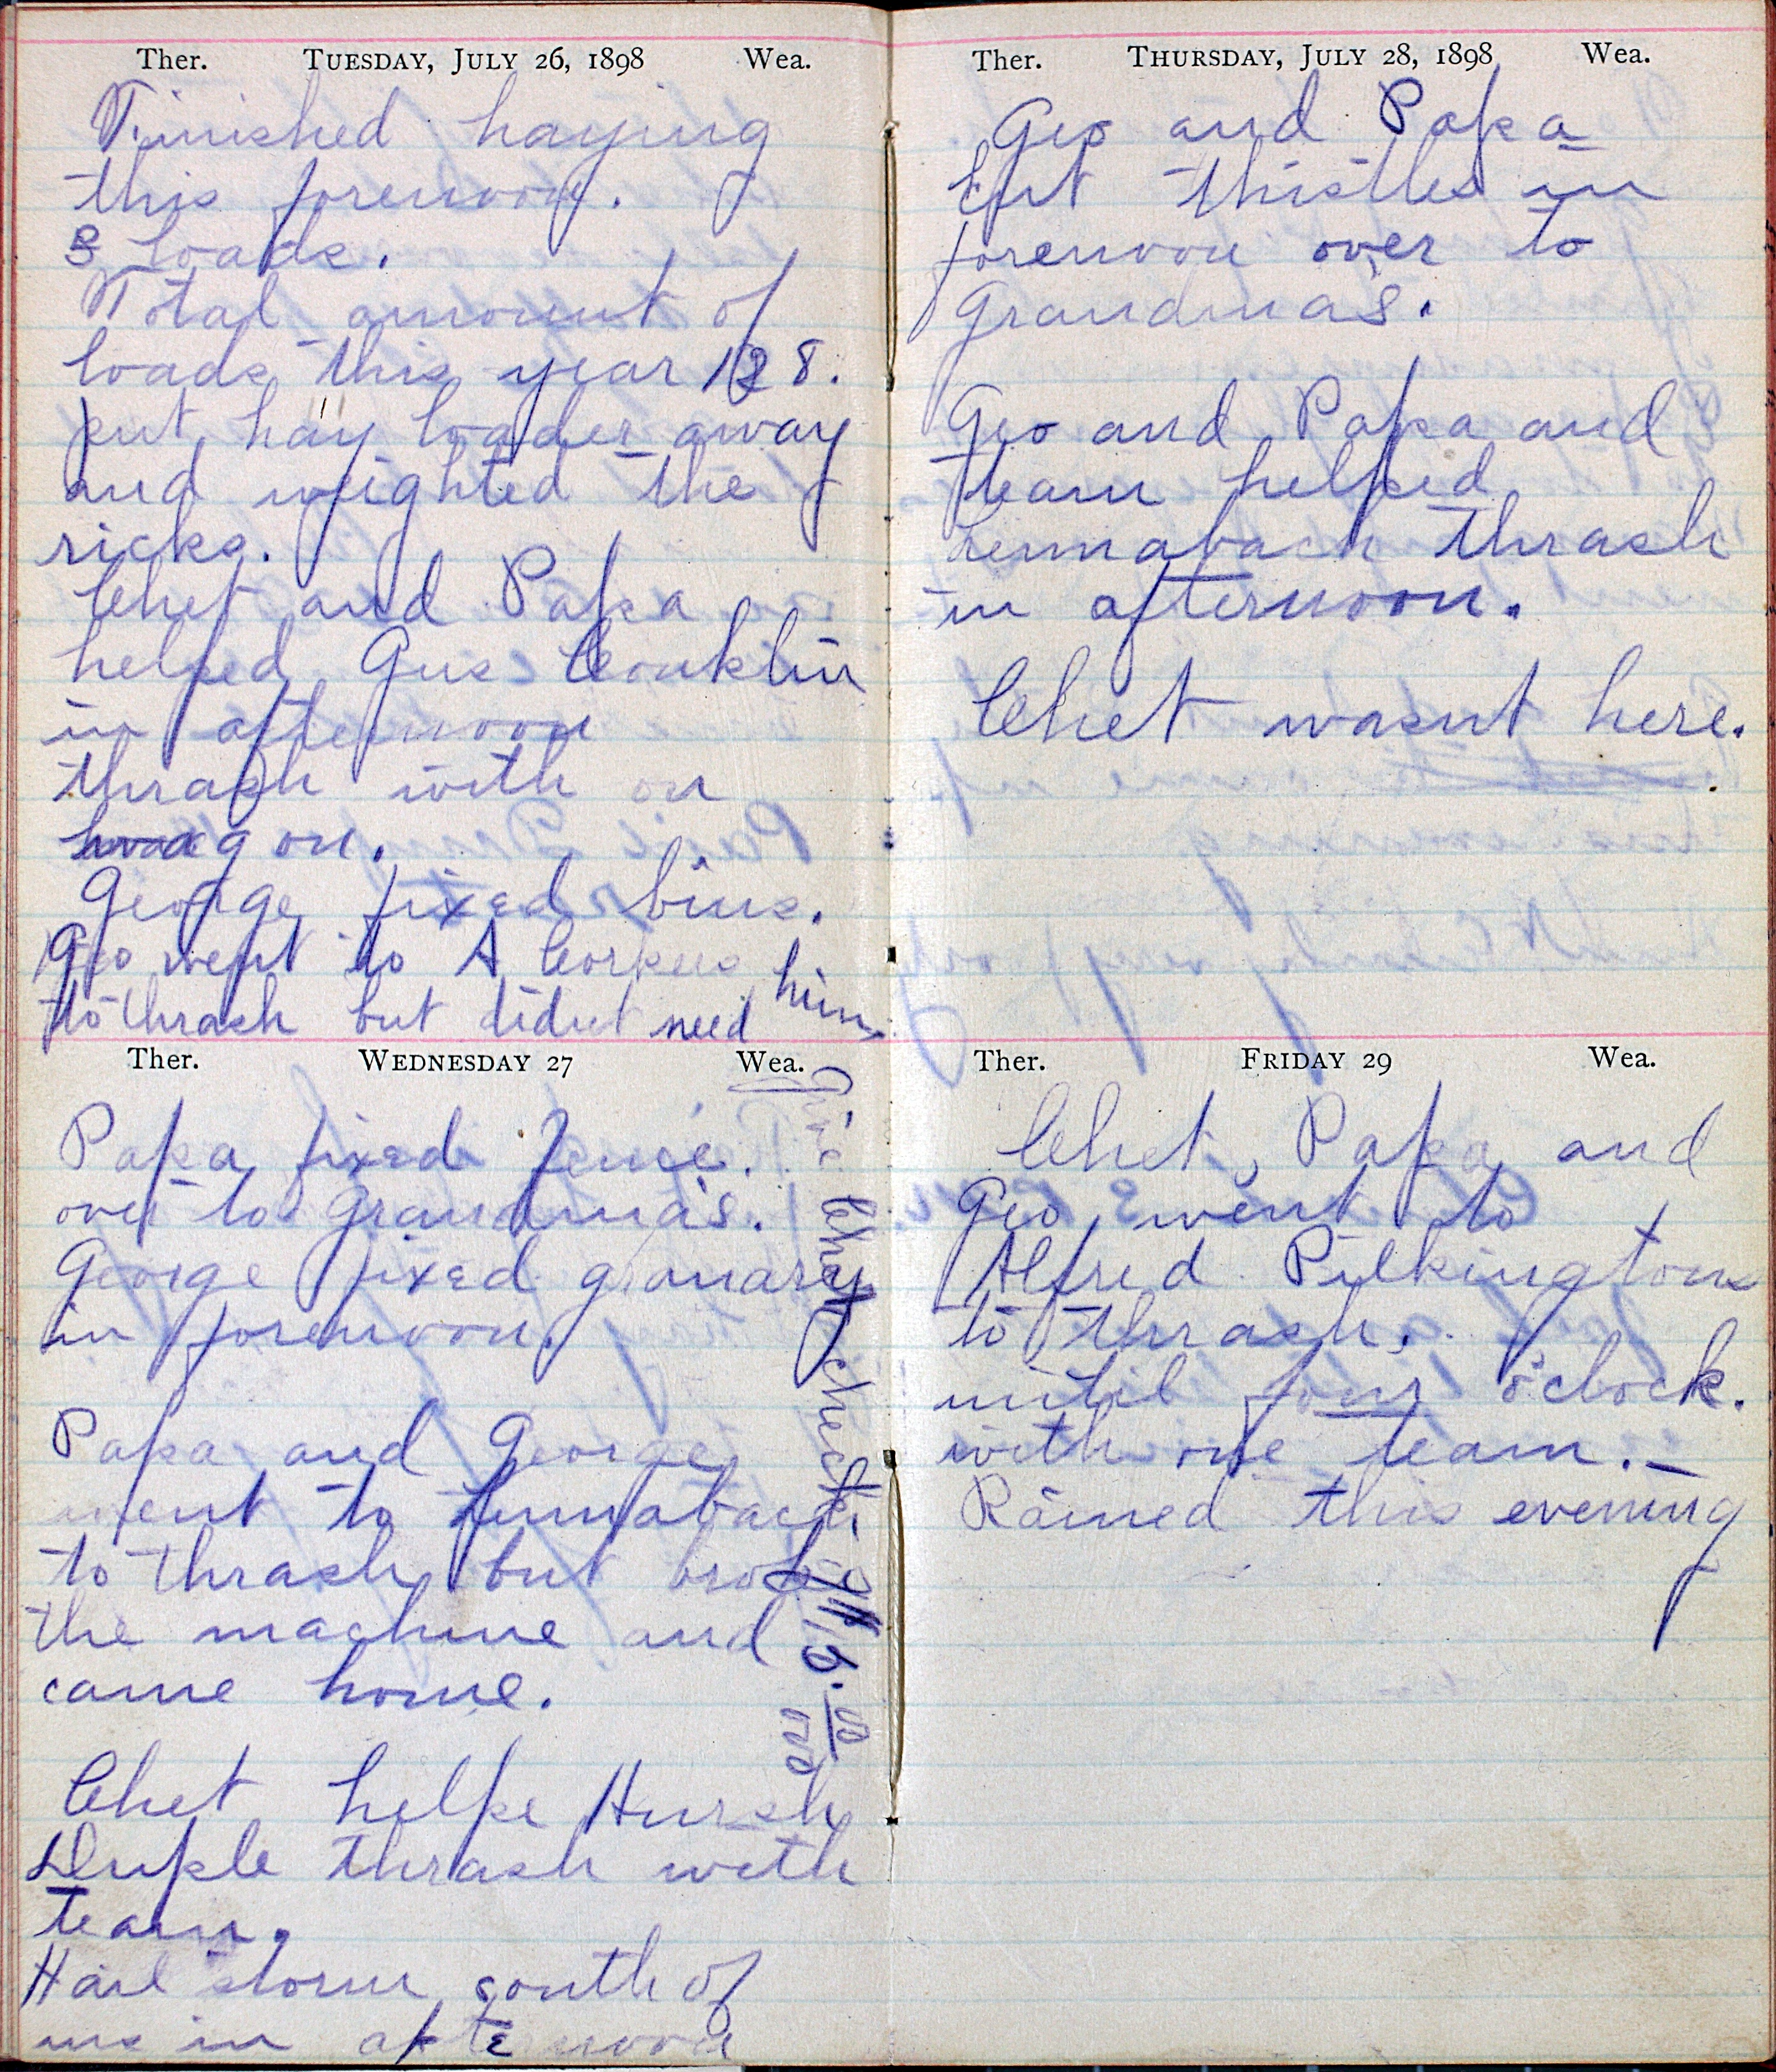 Ther. TUESDAY, JULY 26, 1898 Wea.
Finished haying
this forenoon.
3 loads.
Total amount of
loads this year 128.
put hay loader away
and weighted the
ricks.
Chet and Papa
helped Gus Conklin
in afternoon
thrash with on
wagon.
George fixed bins.
Geo went to A
to thrash but didnt need him
Ther. WEDNESDAY 27 Wea.
Papa fixed fence.
over to grandma's.
George fixed granary
in forenoon.
Papa and George
went to Lennabach
to thrash but broke
the machine and
came home.
Chet helpe Hursh
Duple thrash with
team.
Hail storm south of
us in afternoon
Chet check
Ther. THURSDAY, JULY 28, 1898 Wea.
Geo and Papa
Cut thistles in
forenoon over to
Grandma's.
Geo and Papa and
team helped
Lennabach thrash
in afternoon.
Chet wasnt here.
Ther. FRIDAY 29 Wea.
Chet, Papa and
Geo went to
Alfred Pilkingtons
to thrash.
until four o'clock.
with one team.
Rained this evening